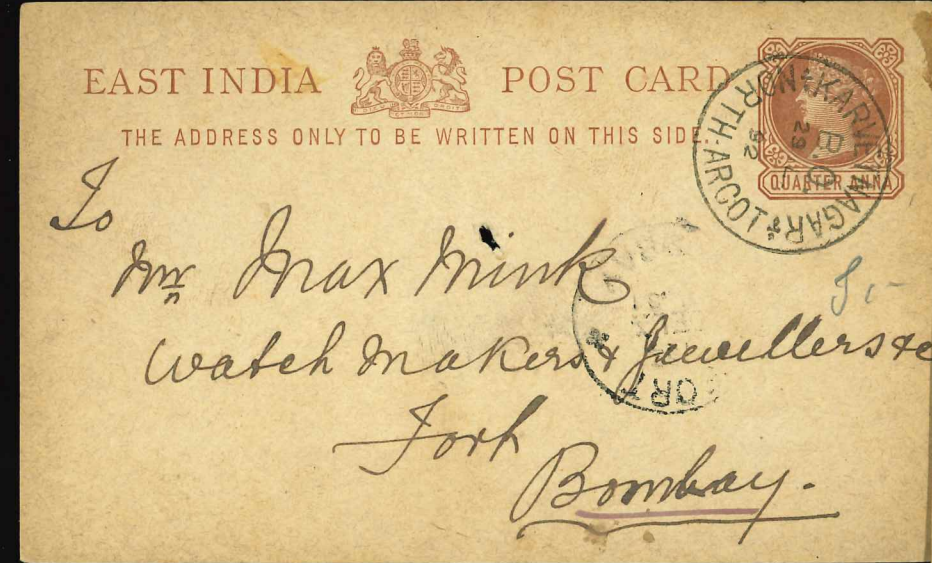 EAST INDIA POST CARD
THE ADDRESS ONLY TO BE WRITTEN ON THIS SIDE.
QUARTER ANNA
KARVETNAGAR
NORTH-ARCOT
B.O.
29
92
To
Mr. Max Mink
Watch Makers & Jewellers &c
Fort
Bombay.